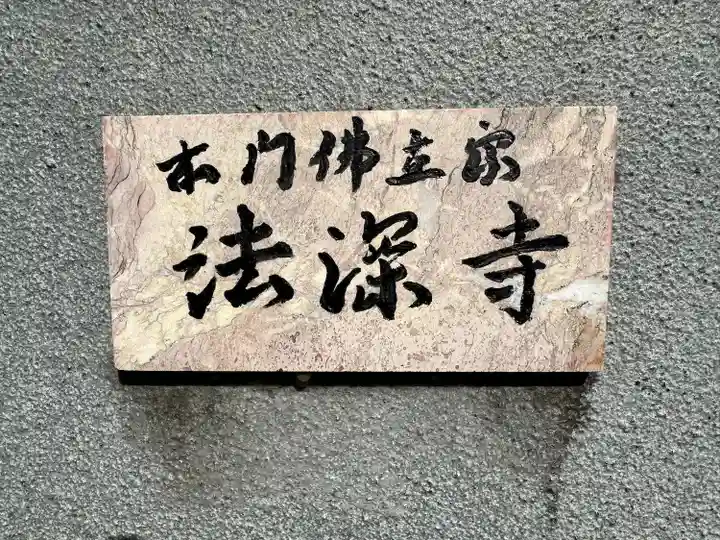 本門佛立宗
法深寺